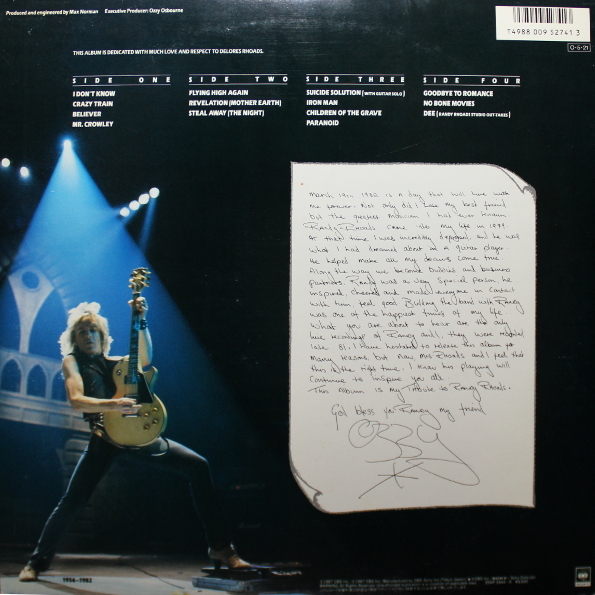 Produced and engineered by Max Norman Executive Producer: Ozzy Osbourne
T4988 009 52741 3
THIS ALBUM IS DEDICATED WITH MUCH LOVE AND RESPECT TO DELORES RHOADS.
SIDE ONE
I DON'T KNOW
CRAZY TRAIN
BELIEVER
MR. CROWLEY
SIDE TWO
FLYING HIGH AGAIN
REVELATION (MOTHER EARTH)
STEAL AWAY (THE NIGHT)
SIDE THREE
SUICIDE SOLUTION (WITH GUITAR SOLO)
IRON MAN
CHILDREN OF THE GRAVE
PARANOID
SIDE FOUR
GOODBYE TO ROMANCE
NO BONE MOVIES
DEE (RANDY RHOADS STUDIO OUT-TAKES)
March 19th 1982 is a day that will live with
me forever. Not only did I lose my best friend
but the greatest musician I had ever known
Randy Rhoads came into my life in 1979.
At that time I was incredibly depressed and he was
what I had dreamed about in a guitar player.
He helped make all my dreams come true.
Along the way we became buddies and business
partners. Randy was a very special person he
inspired, cheered and made everyone in contact
with him feel good. Building the band with Randy
was one of the happiest times of my life.
What you are about to hear are the only
live recordings of Randy and I, they were recorded
late 81. I have hesitated to release this album for
many reasons but now Mrs Rhoads and I feel that
this is the right time. I know his playing will
continue to inspire you all.
This album is my tribute to Randy Rhoads.
God bless ya Randy my friend
OZZY
1956-1982